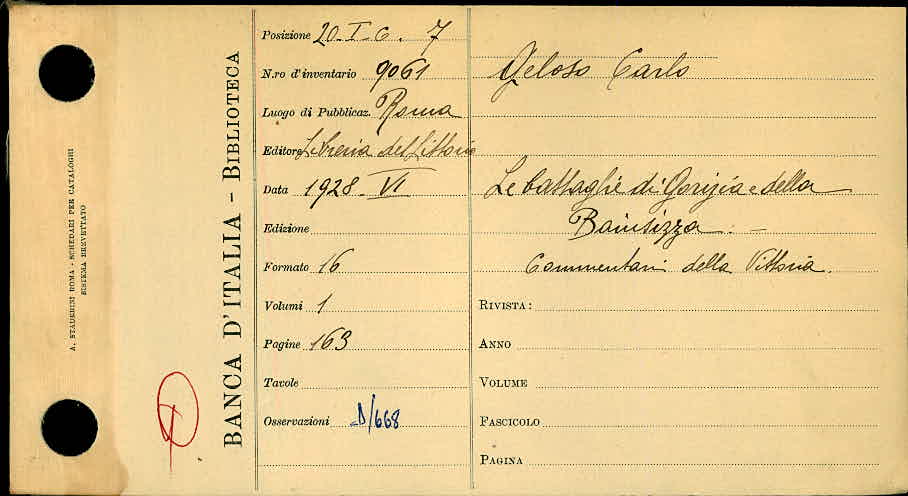 A. STADERINI ROMA - SCHEDARI PER CATALOGHI
SISTEMA BREVETTATO
BANCA D'ITALIA - BIBLIOTECA
Posizione 20-I-G. 7
N.ro d'inventario 9061
Luogo di Pubblicaz. Roma
Editore Libreria del Littorio
Data 1928 - VI
Edizione
Formato 16
Volumi 1
Pagine 163
Tavole
Osservazioni D/668
Geloso Carlo
Le battaglie di Gorizia e della
Bainsizza. -
Commentari della Vittoria.
RIVISTA:
ANNO
VOLUME
FASCICOLO
PAGINA